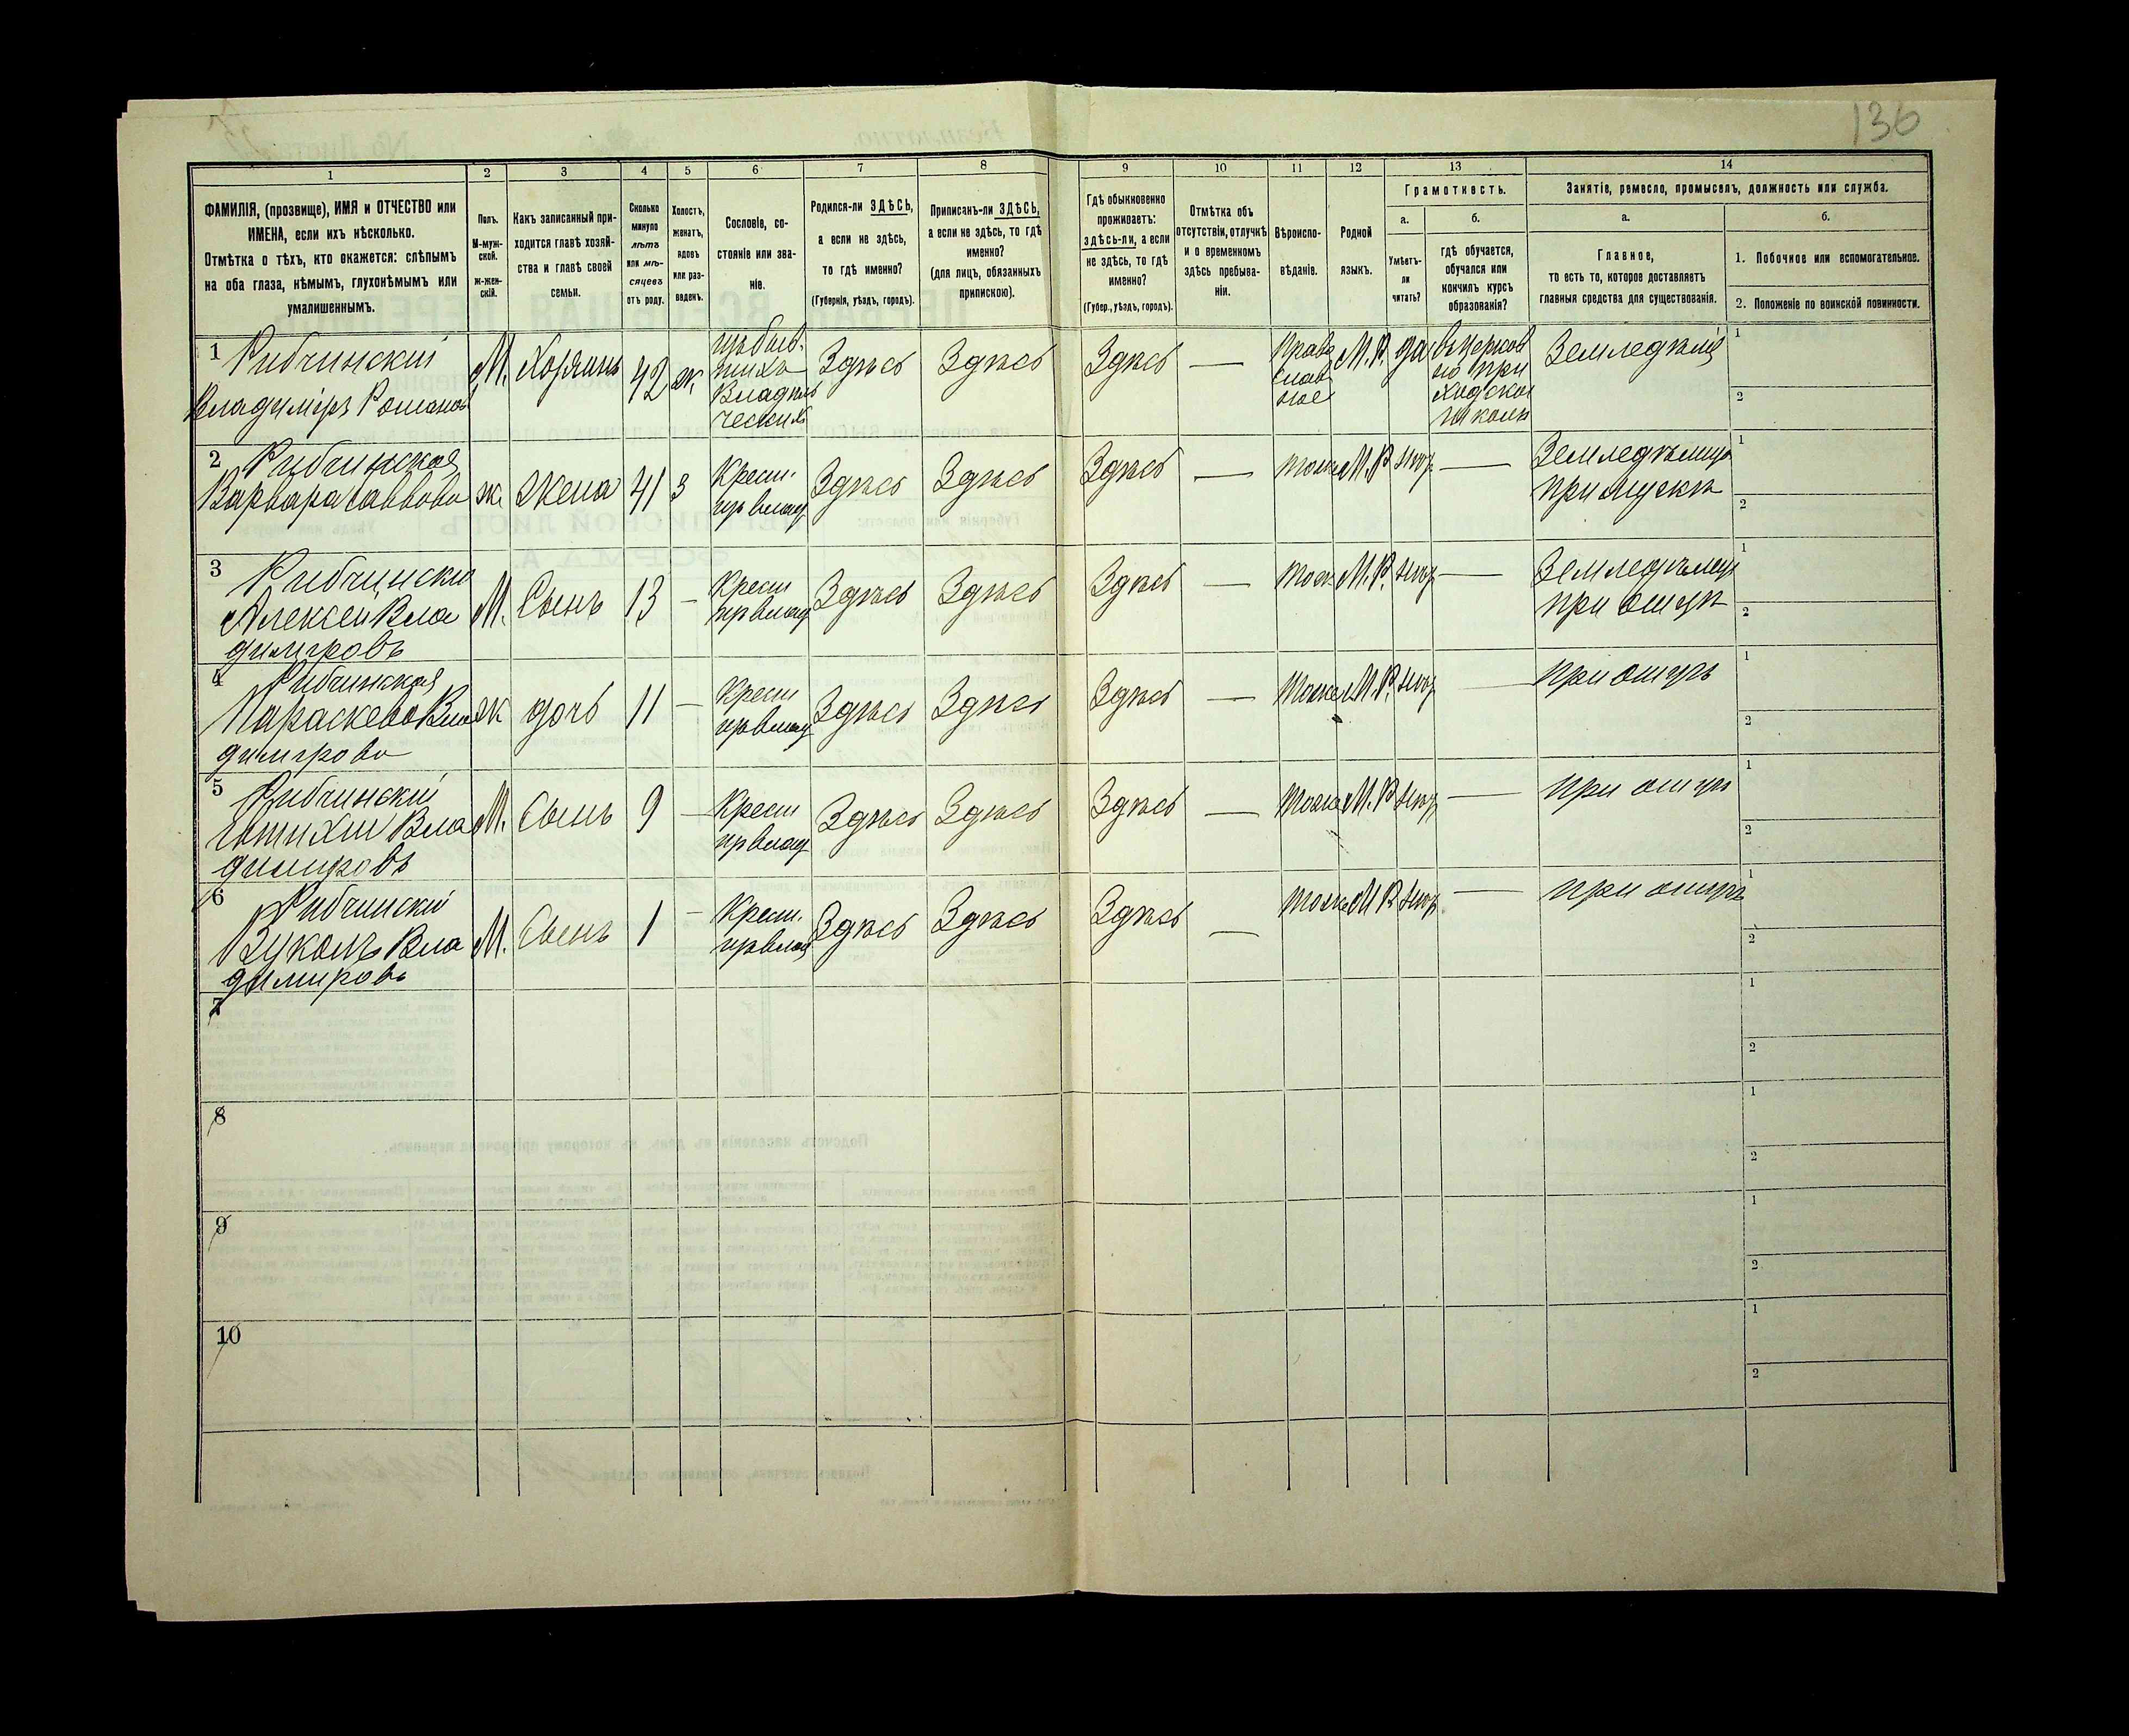 136
1
2
3
4
5
6
7
8
9
10
11
12
13
14
ФАМИЛІЯ, (прозвище), ИМЯ и ОТЧЕСТВО или
ИМЕНА, если ихъ нѣсколько.
Отмѣтка о тѣхъ, кто окажется: слѣпымъ
на оба глаза, нѣмымъ, глухонѣмымъ или
умалишеннымъ.
Полъ.
М-муж-
ской.
Ж-жен-
скій.
Какъ записанный при-
ходится главѣ хозяй-
ства и главѣ своей
семьи.
Сколько
минуло
лѣтъ
или мѣ-
сяцевъ
отъ роду.
Холостъ,
женатъ,
вдовъ
или раз-
веденъ.
Сословіе, со-
стояніе или зва-
ніе.
Родился-ли ЗДѢСЬ,
а если не здѣсь,
то гдѣ именно?
(Губернія, уѣздъ, городъ).
Приписанъ-ли ЗДѢСЬ,
а если не здѣсь, то гдѣ
именно?
(для лицъ, обязанныхъ
припискою).
Гдѣ обыкновенно
проживаетъ:
здѣсь-ли, а если
не здѣсь, то гдѣ
именно?
(Губер., уѣздъ, городъ).
Отмѣтка объ
отсутствіи, отлучкѣ
и о временномъ
здѣсь пребыва-
ніи.
Вѣроиспо-
вѣданіе.
Родной
языкъ.
Грамотность.
а.
Умѣетъ-
ли
читать?
б.
гдѣ обучается,
обучался или
кончилъ курсъ
образованія?
Занятіе, ремесло, промыселъ, должность или служба.
а.
Главное,
то есть то, которое доставляетъ
главныя средства для существованія.
б.
1. Побочное или вспомогательное.
2. Положеніе по воинской повинности.
1 Рибчинскій
Владиміръ Романовъ
М. Хозяинъ 42 ж.
изъ быв.
шихъ
Владѣль
ческихъ
Здѣсь Здѣсь Здѣсь —
Право
слав
ное
М.Р. да
въ церков
но при
ходской
школѣ
Земледѣлiе
1
2
2 Рибчинская
Варвара Саввова
ж жена 41 з
Крест.
изъ влад
Здѣсь Здѣсь Здѣсь — тоже М.Р. нѣтъ —
Земледѣлица
при мужѣ
1
2
3 Рибчински
Алексей Вла
димировъ
М. Сынъ 13 —
Крест
изъ влад
Здѣсь Здѣсь Здѣсь — тоже М.Р. нѣтъ —
при отцѣ
1
2
4 Рибчинская
Параскева Вла
димирова
ж дочь 11 —
Крест
изъ влад
Здѣсь Здѣсь Здѣсь — тоже М.Р. нѣтъ —
при отцѣ
1
2
5 Рибчинскій
Вла
димировъ
М. Сынъ 9 —
Крест
изъ влад
Здѣсь Здѣсь Здѣсь — тоже М.Р. нѣтъ —
при отцѣ
1
2
6 Рибчинскій
Вуколъ Вла
димировъ
М. Сынъ 1 —
Крест.
изъ влад
Здѣсь Здѣсь Здѣсь — тоже М Р нѣтъ —
при отцѣ
1
2
7
1
2
8
1
2
9
1
2
10
1
2